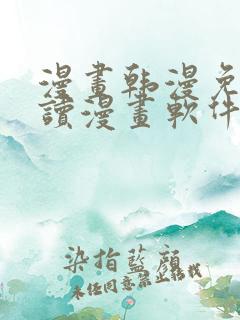 漫畫韩漫免
讀漫畫軟件
染指藍顏
未经同意禁止转载